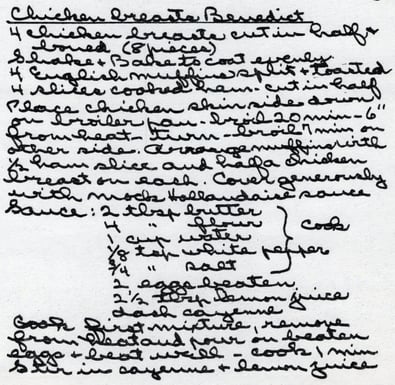 Chicken breasts Benedict
4 chicken breasts cut in half &
boned (8 pieces)
Shake & Bake to coat evenly
4 English muffins split & toasted
4 slices cooked ham - cut in half
Place chicken skin side down
on broiler pan - broil 20 min - 6"
from heat - turn - broil 7 min on
other side. Arrange muffins with
1/2 ham slice and half a chicken
breast on each. Cover generously
with mock Hollandaise sauce
Sauce: 2 tbsp butter
4 " flour
1 cup water
1/8 tsp white pepper
3/4 " salt
} cook
2 eggs beaten
2 1/2 tbsp lemon juice
dash cayenne
Cook first mixture, remove
from heat and pour on beaten
eggs & beat well - cook 1 min
Stir in cayenne & lemon juice